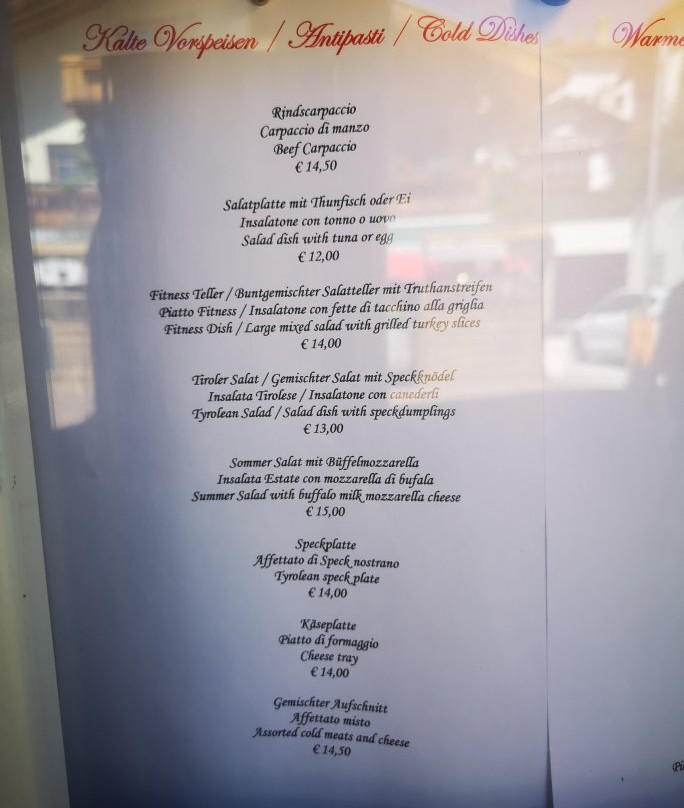 Kalte Vorspeisen / Antipasti / Cold Dishes
Rindscarpaccio
Carpaccio di manzo
Beef Carpaccio
€ 14,50
Salatplatte mit Thunfisch oder Ei
Insalatone con tonno o uovo
Salad dish with tuna or egg
€ 12,00
Fitness Teller / Buntgemischter Salatteller mit Truthanstreifen
Piatto Fitness / Insalatone con fette di tacchino alla griglia
Fitness Dish / Large mixed salad with grilled turkey slices
€ 14,00
Tiroler Salat / Gemischter Salat mit Speckknödel
Insalata Tirolese / Insalatone con canederli
Tyrolean Salad / Salad dish with speckdumplings
€ 13,00
Sommer Salat mit Büffelmozzarella
Insalata Estate con mozzarella di bufala
Summer Salad with buffalo milk mozzarella cheese
€ 15,00
Speckplatte
Affettato di Speck nostrano
Tyrolean speck plate
€ 14,00
Käseplatte
Piatto di formaggio
Cheese tray
€ 14,00
Gemischter Aufschnitt
Affettato misto
Assorted cold meats and cheese
€ 14,50
Warme